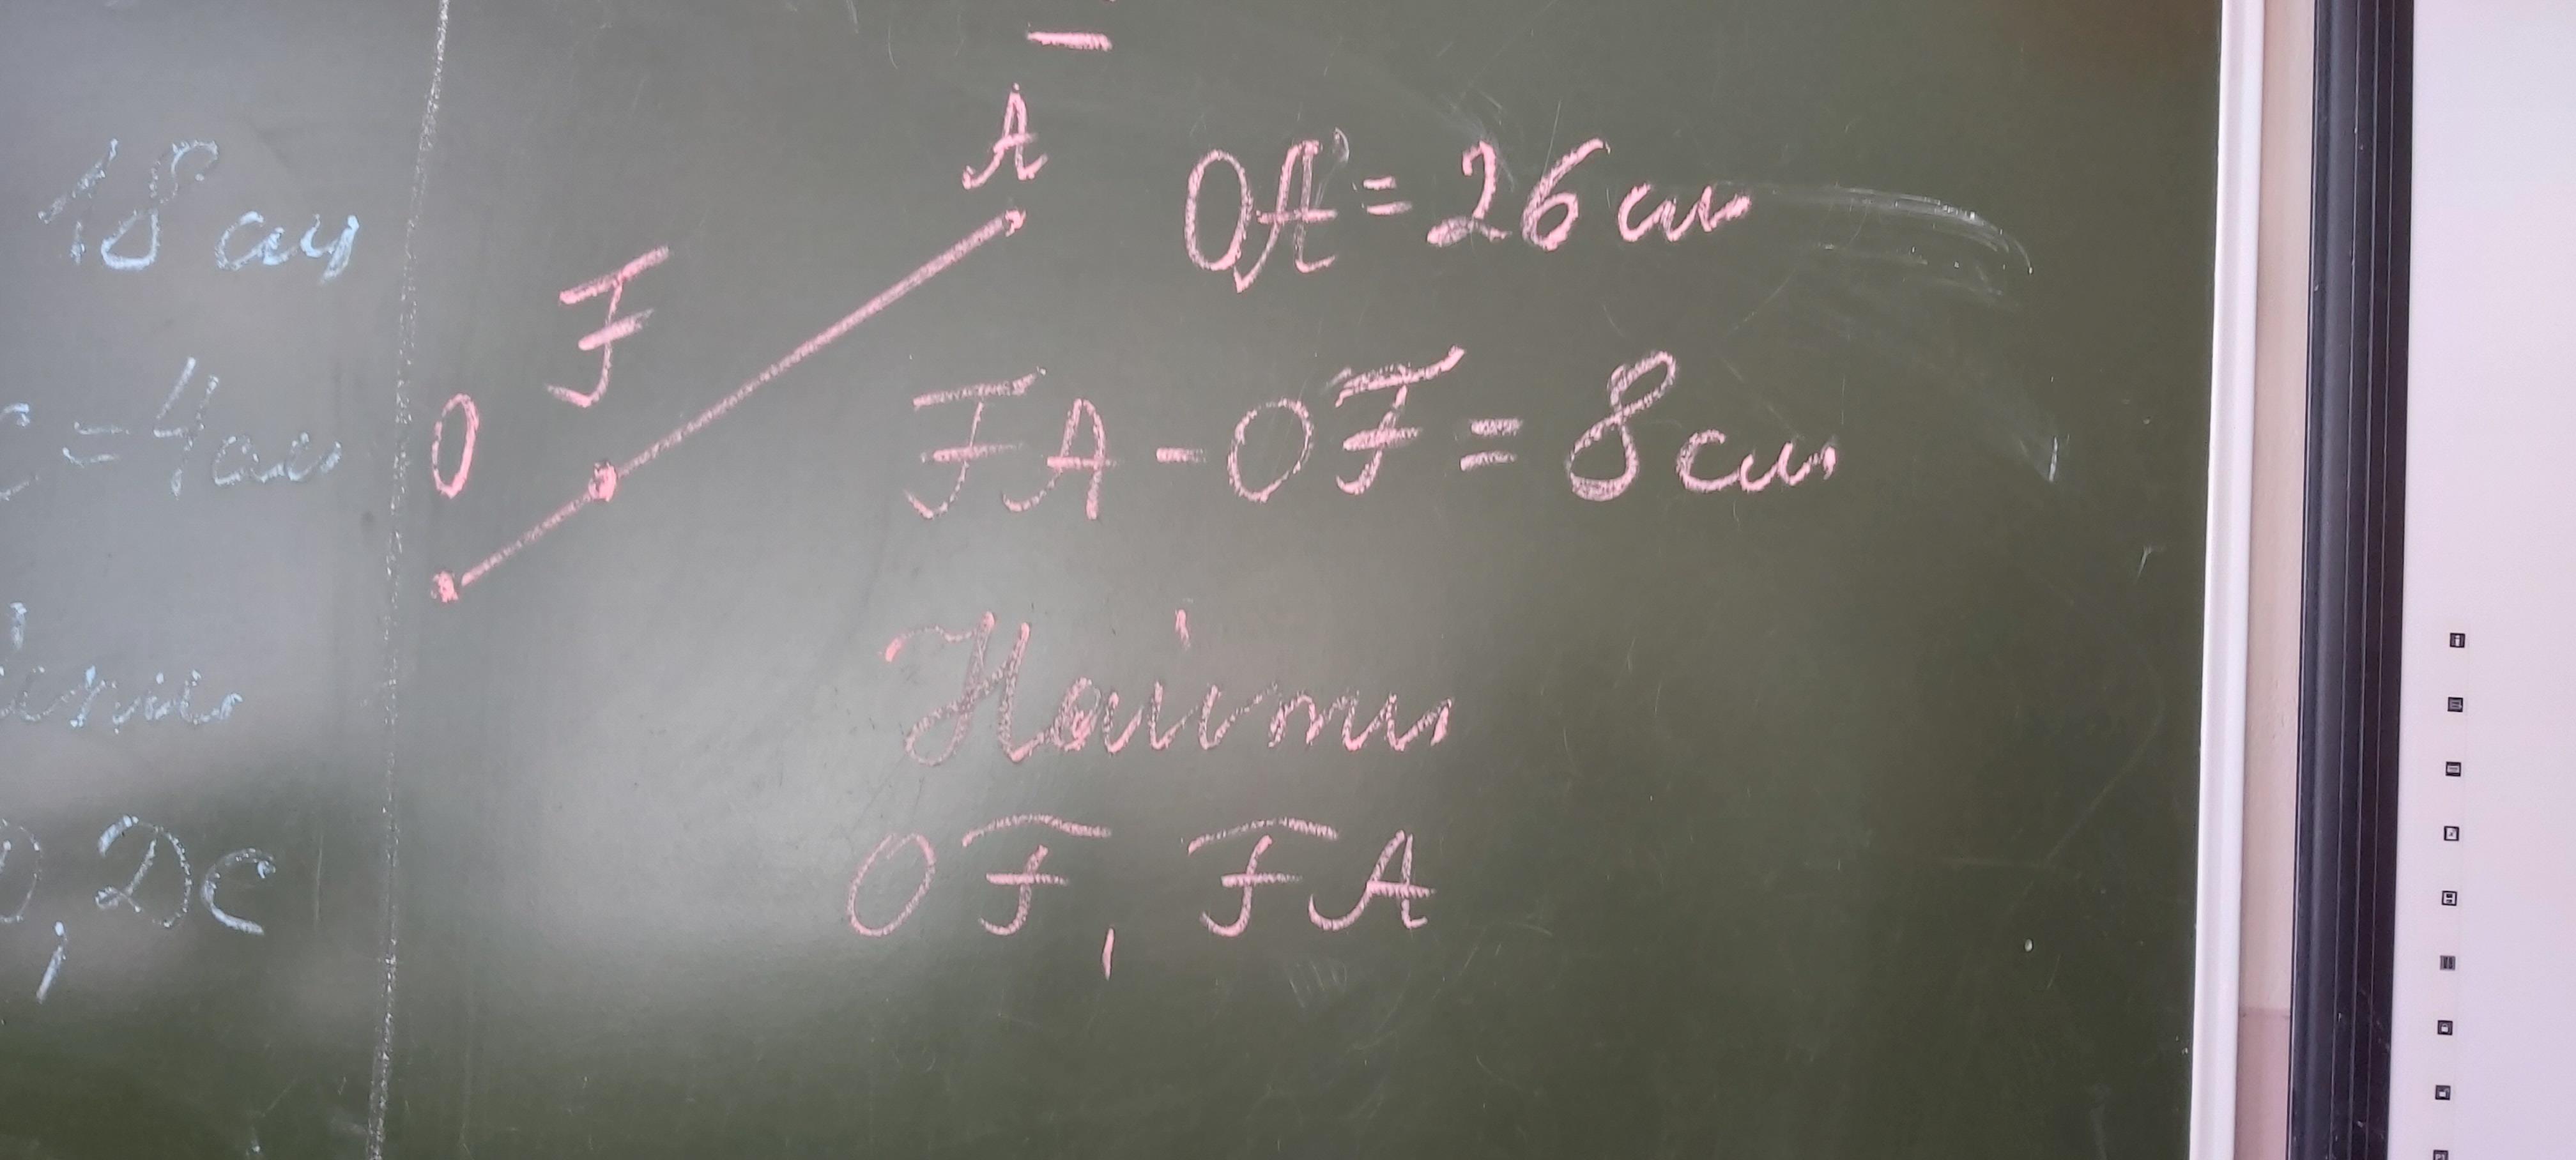 18 см
С=4см
D, DC
A
F
O
OA=26см
FA-OF=8см
Найти
OF, FA